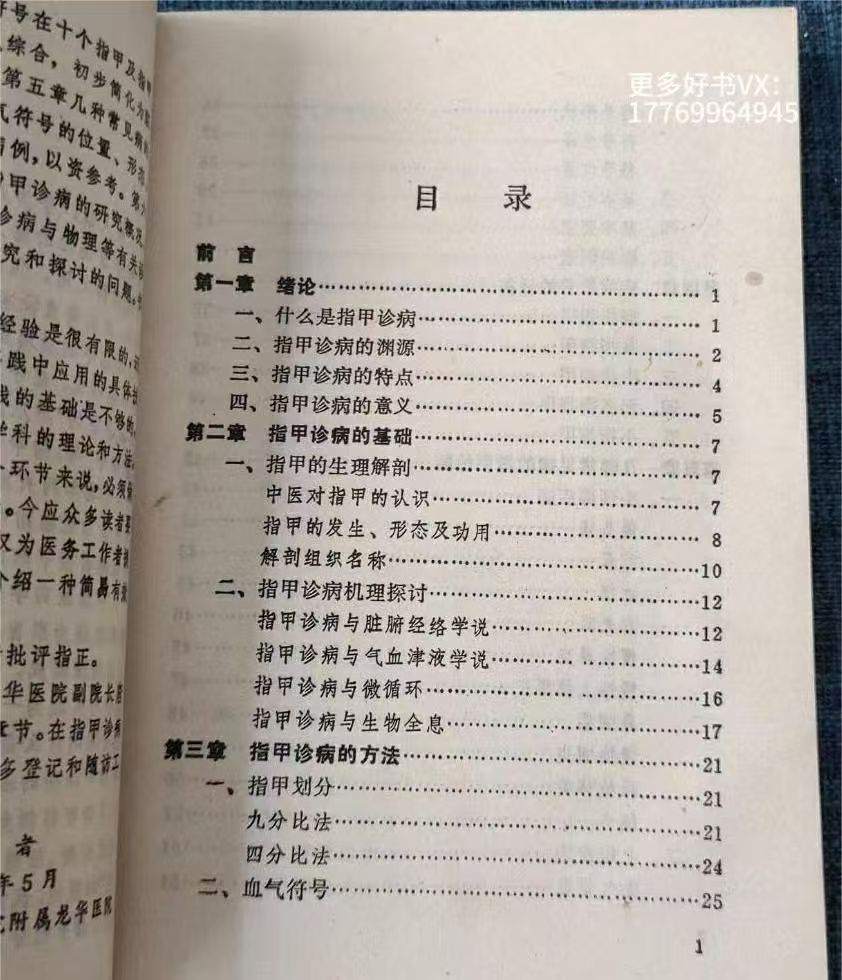 符号在十个指甲及指甲
综合，初步简化为
第五章几种常见病
气符号的位置、形态
病例，以资参考。第
甲诊病的研究概况
诊病与物理等有关
究和探讨的问题。
经验是很有限的，
践中应用的具体
的基础是不够的
学科的理论和方法
环节来说，必须
。今应众多读者要
又为医务工作者
介绍一种简易有效
批评指正。
华医院副院长
章节。在指甲诊病
多登记和随访工
者
年5月
附属龙华医院
更多好书VX：
17769964945
目 录
前 言
第一章 绪论……1
一、什么是指甲诊病……1
二、指甲诊病的渊源……2
三、指甲诊病的特点……4
四、指甲诊病的意义……5
第二章 指甲诊病的基础……7
一、指甲的生理解剖……7
中医对指甲的认识……7
指甲的发生、形态及功用……8
解剖组织名称……10
二、指甲诊病机理探讨……12
指甲诊病与脏腑经络学说……12
指甲诊病与气血津液学说……14
指甲诊病与微循环……16
指甲诊病与生物全息……17
第三章 指甲诊病的方法……21
一、指甲划分……21
九分比法……21
四分比法……24
二、血气符号……25
1